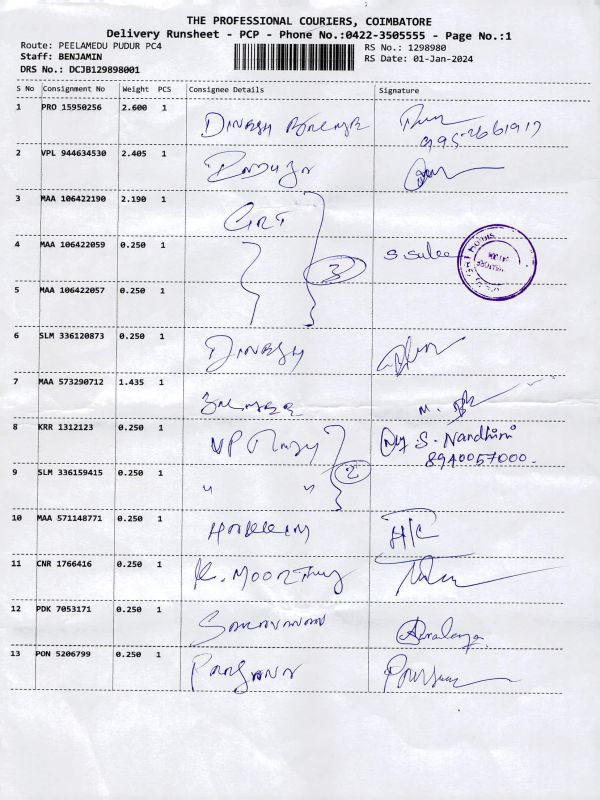 THE PROFESSIONAL COURIERS, COIMBATORE
Delivery Runsheet - PCP - Phone No.:0422-3505555 - Page No.:1
Route: PEELAMEDU PUDUR PC4
RS No.: 1298980
Staff: BENJAMIN
RS Date: 01-Jan-2024
DRS No.: DCJB129898001
S No Consignment No Weight PCS Consignee Details Signature
1 PRO 15950256 2.600 1 DINESH
2 VPL 944634530 2.405 1
3 MAA 106422190 2.190 1 GRT
4 MAA 106422059 0.250 1 3
5 MAA 106422057 0.250 1
6 SLM 336120873 0.250 1 DINESH
7 MAA 573290712 1.435 1
8 KRR 1312123 0.250 1 VP S. Nandhini
8940057000.
9 SLM 336159415 0.250 1 " " 2
10 MAA 571148771 0.250 1 H/C
11 CNR 1766416 0.250 1 K. MOORTHY
12 PDK 7053171 0.250 1 SARAVANAN
13 PON 5206799 0.250 1